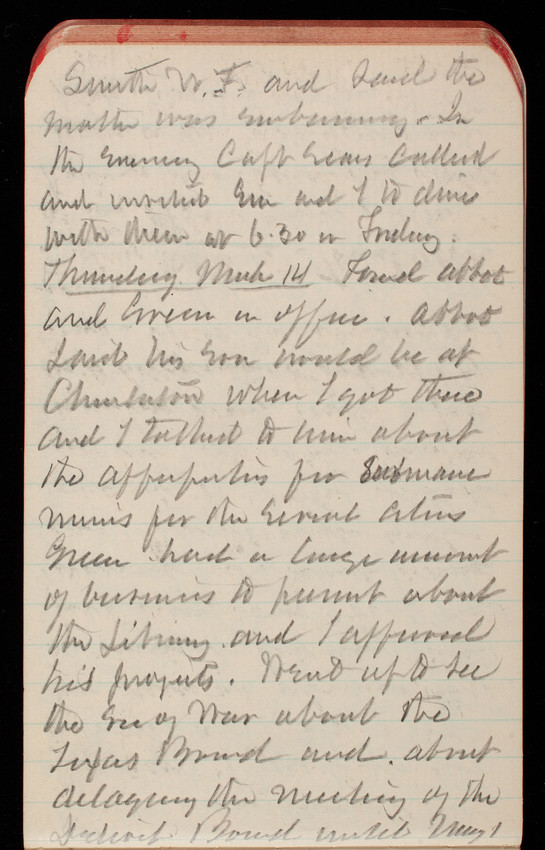 Smith W. F. and said the
matter was embarrassing. In
the evening Capt Sears called
and invited Em and I to dine
with them at 6.30 on Friday.
Thursday March 14 Found Abbot
and Green in office. Abbot
said his son would be at
Charleston when I got there
and I talked to him about
the appropriation for submarine
mines for the several cities
Green had a large amount
of business to present about
the Library and I approved
his projects. Went up to see
the Sec of War about the
Texas Board and about
delaying the meeting of the
Detroit Board until May 1